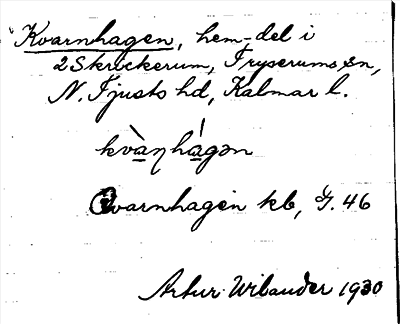 Kvarnhagen, hem-del i
2 Skrickerum, Tryserums sn,
N. Tjusts hd, Kalmar l.
kvàŋhágən
Qvarnhagen kb, G. 46
Artur Wibauder 1930